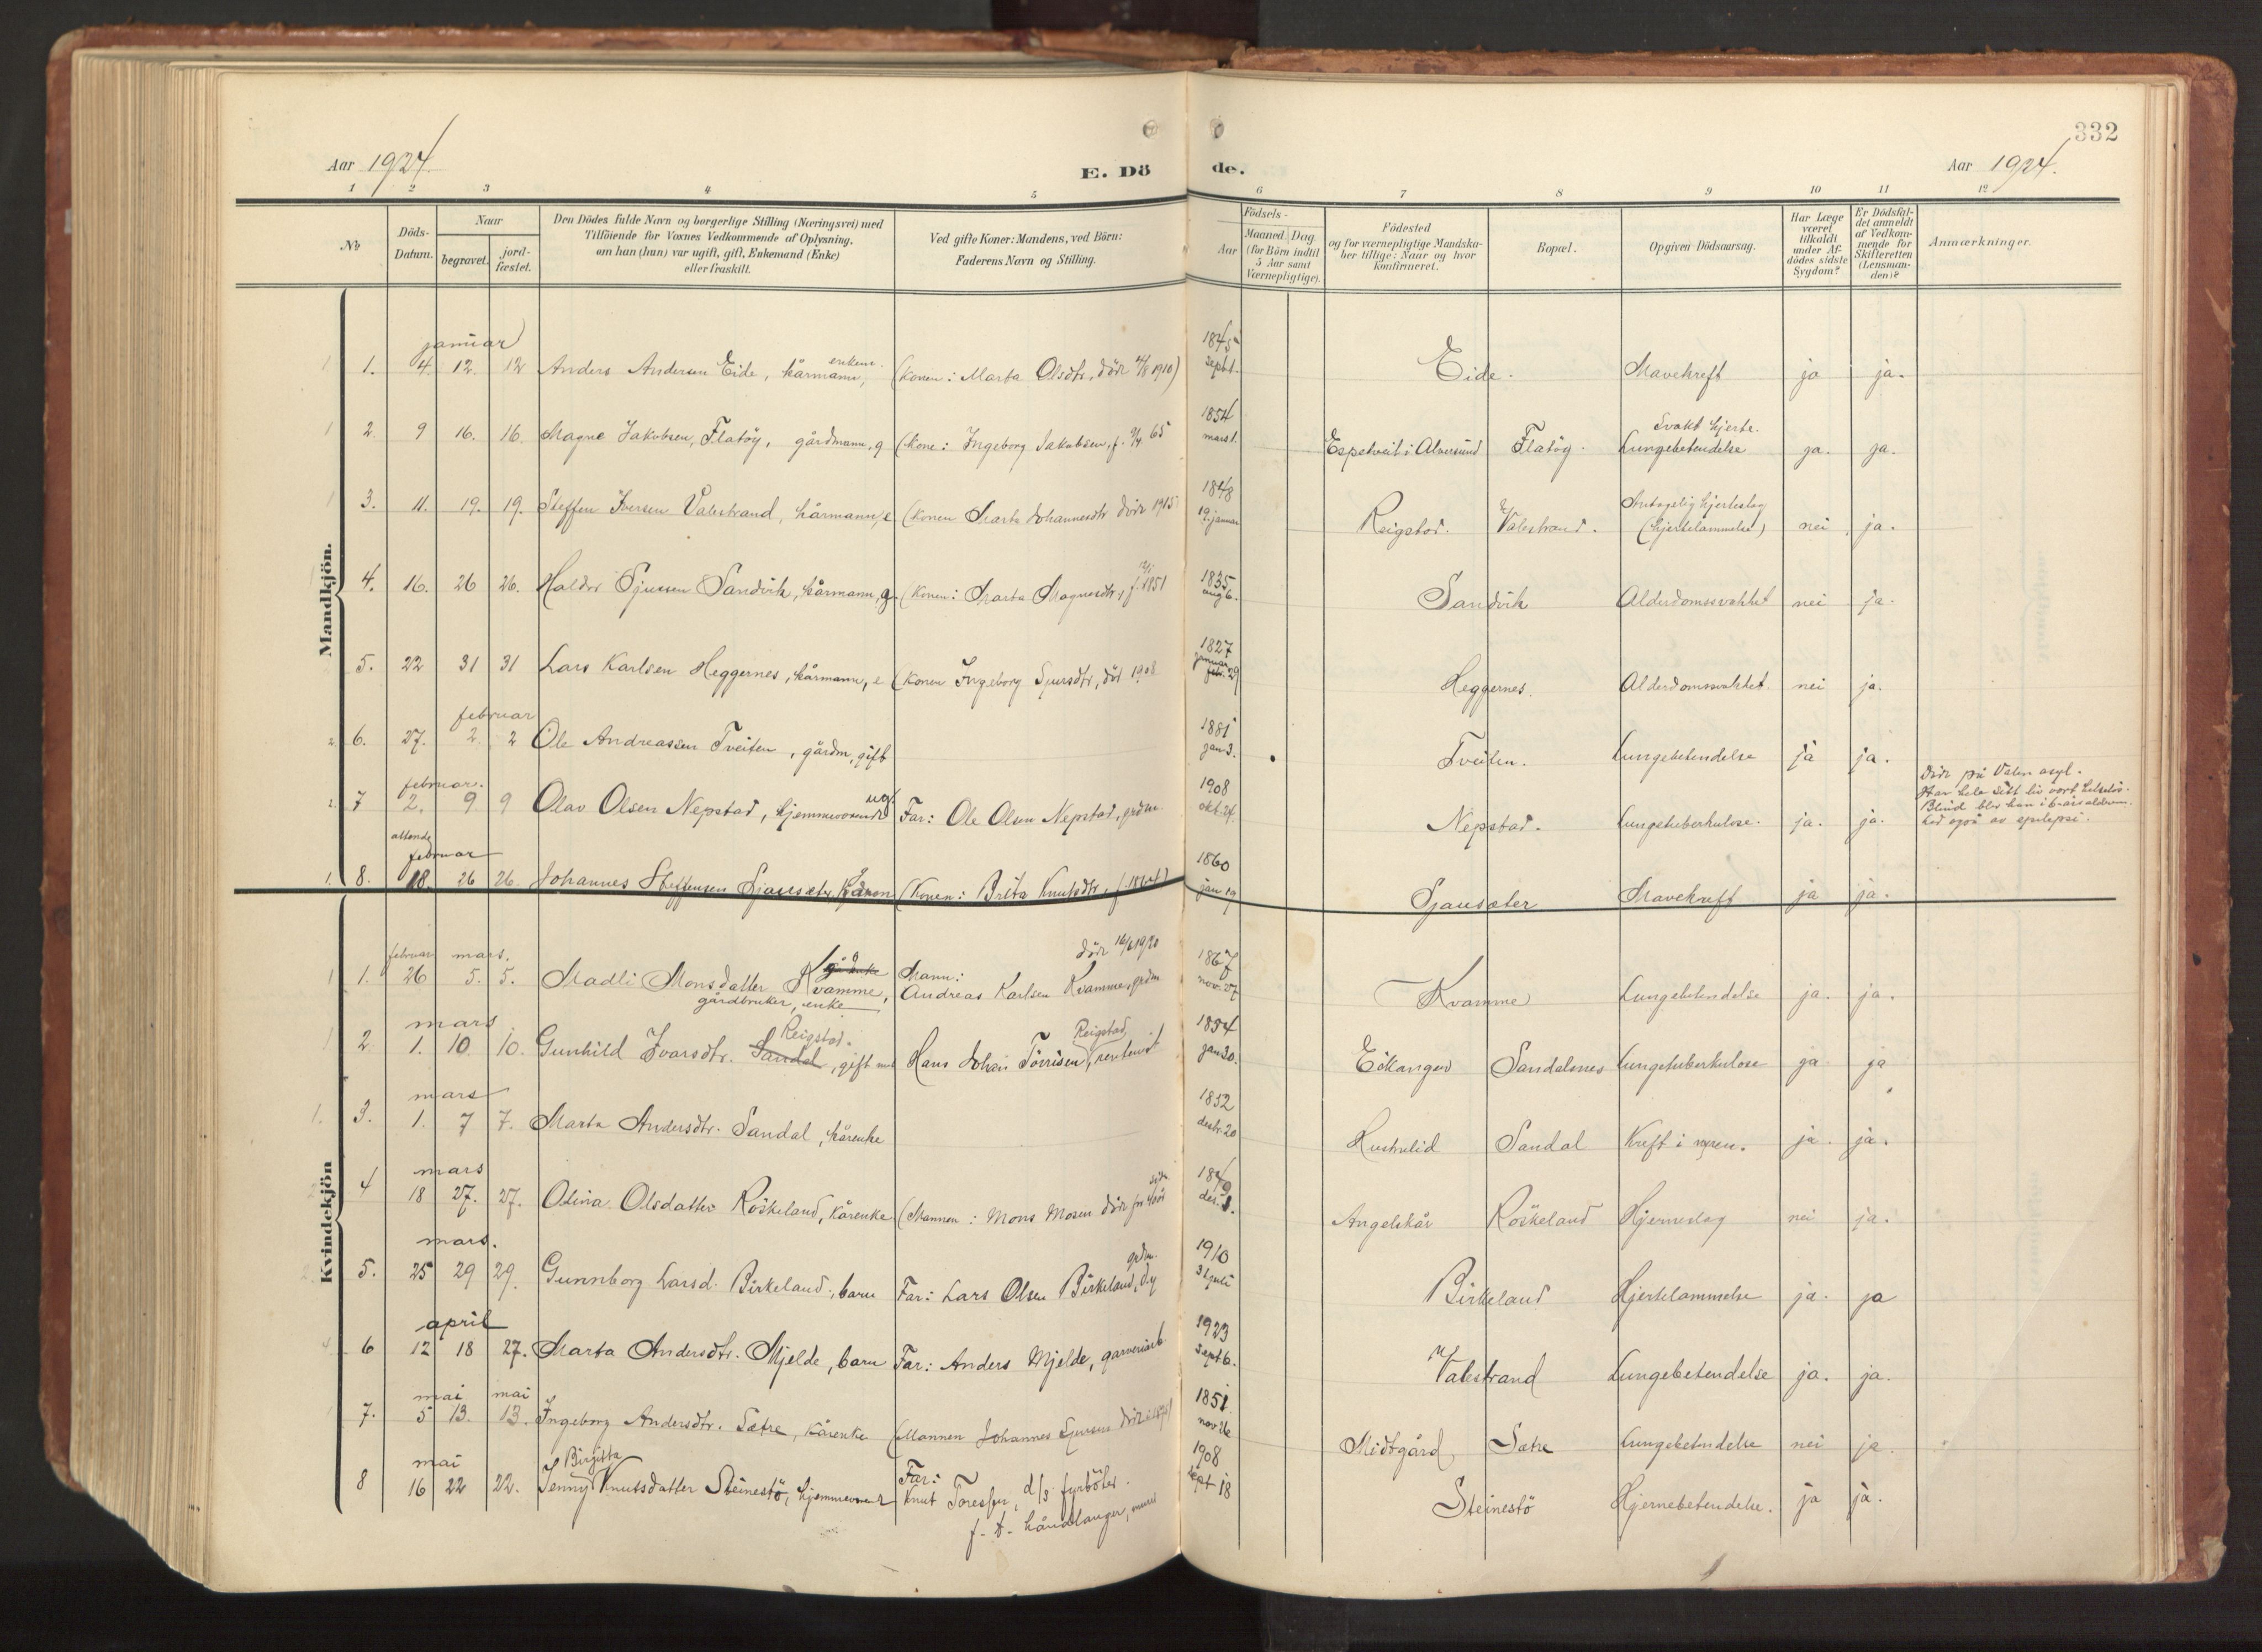 332
Aar 1924.
E. Döde.
Aar 1924.
1 2 3 4 5 6 7 8 9 10 11 12
No
Döds-Datum.
Naar
begravet. jord-fæstet.
Den Dödes fulde Navn og borgerlige Stilling (Næringsvei) med
Tilföiende for Voxnes Vedkommende af Oplysning,
om han (hun) var ugift, gift, Enkemand (Enke)
eller fraskilt.
Ved gifte Koner: Mandens, ved Börn:
Faderens Navn og Stilling.
Födsels-
Aar Maaned. Dag
(for Börn indtil
5 Aar samt
Værnepligtige).
Födested
og for værnepligtige Mandska-
ber tillige: Naar og hvor
konfirmeret.
Bopæl.
Opgiven Dödsaarsag.
Har Læge
været
tilkaldt
under Af-
dödes sidste
Sygdom?
Er Dödsfal-
det anmeldt
af Vedkom-
mende for
Skifteretten
(Lensman-
den)?
Anmærkninger.
Mandkjön.
januar
1. 4. 12. 12 Anders Andersen Eide, kårmann, (Konen: Marta Olsdtr. död 1910) 1845 sept 1. Eide. Mavekreft ja ja.
2. 9 16. 16. Magne Jakobsen, Flatöy, gårdmann, g (Kone: Ingeborg Jakobsen, f. 65 1854 mars 1. Espetveit i Alversund Flatöy. Svakt hjerte. Lungebetendelse ja. ja.
3. 11. 19. 19. Steffen Iversen Valestrand, kårmann, e (Konen Marta Johannesdtr död 1915 1848 19. januar Reigstad. Valestrand. Antagelig hjerteslag (hjertelammelse) nei ja.
4. 16. 26 26. Haldor Sjursen Sandvik, kårmann, g. (Konen: Marta Magnesdtr, f. 1851 1835 aug 6. Sandvik Alderdomssvakhet nei ja.
5. 22 31 31 Lars Karlsen Heggernes, kårmann, e (Konen Ingeborg Sjursdtr, död 1908 1827 januar 29 Heggernes. Alderdomssvakhet. nei ja.
februar
6. 27. 2. 2 Ole Andreassen Tveiten, gårdm, gift 1881 jan 3. Tveiten. Lungebetendelse ja ja.
februar.
7 2. 9 9 Olav Olsen Nepstad, hjemmeværende ug. Far: Ole Olsen Nepstad, grdm. 1908 okt. 24. Nepstad. Lungetuberkulose. ja. ja.
Död på Valen asyl.
Har hele sitt liv vært helselös.
Blind blev han i
Led også av epilepsi.
attende
februar
8. 18. 26 26. Johannes Steffensen Sjausæter, (Konen: Brita Knutsdtr, 1860 jan 19 Sjausæter Mavekreft ja ja.
Kvindekjön
februar mars.
1. 26 5. 5. Madli Monsdatter Kvamme, gårdbruker, enke Mann: Andreas Karlsen Kvamme, grdm död 1920 1867 nov. 27 Kvamme Lungebetendelse ja. ja.
mars
2 1. 10. 10. Gunhild Ivarsdtr. Sandal Reigstad. , gift med Hans Johan Törrisen Reigstad, 1854 jan 30. Eikanger Sandalsnes Lungetuberkulose ja ja
mars
3. 1. 7 7. Marta Andersdtr. Sandal, kårenke 1852 desbr. 20 Sandal Kreft i ja. ja.
mars
4 18 27. 27. Olina Olsdatter Röskeland, kårenke (Mannen: Mons Monsen död Angelskår Röskeland Hjerneslag nei ja.
mars.
5. 25 29 29. Gunnborg Larsd. Birkeland, barn Far: Lars Olsen Birkeland, grdm. 1910 31 juli Birkeland Hjertelammelse ja. ja
april
6 12 18 27. Marta Andersdtr. Mjelde, barn Far: Anders Mjelde, garveriarb. 1923 sept 6. Valestrand Lungebetendelse ja. ja.
mai mai
7. 5 13. 13. Ingeborg Andersdtr. Sætre, kårenke (Mannen Johannes Sjursen död 1851 nov 26 Midtgård Sætre Lungebetendelse nei ja.
mai
8 16 22 22. Jenny Birgitta Knutsdatter Steinestö, hjemmeværende Far: Knut Toresen, d/s fyrböter. f. t. håndlanger, 1908 sept 18 Steinestö Hjernebetendelse. ja ja.